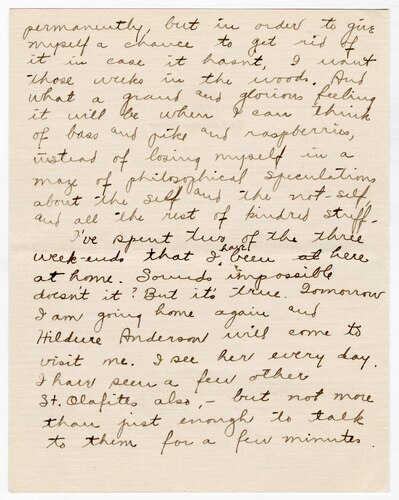 permanently, but in order to give
myself a chance to get rid of
it in case it hasn't, I want
those weeks in the woods. And
what a grand and glorious feeling
it will be when I can think
of bass and pike and raspberries,
instead of losing myself in a
maze of philosophical speculations
about the self and the not-self,
and all the rest of kindred stuff.
I've spent two of the three
week-ends that I have been at here
at home. Sounds impossible
doesn't it? But it's true. Tomorrow
I am going home again and
Hildure Anderson will come to
visit me. I see her every day.
I have seen a few other
St. Olafites also, – but not more
than just enough to talk
to them for a few minutes.